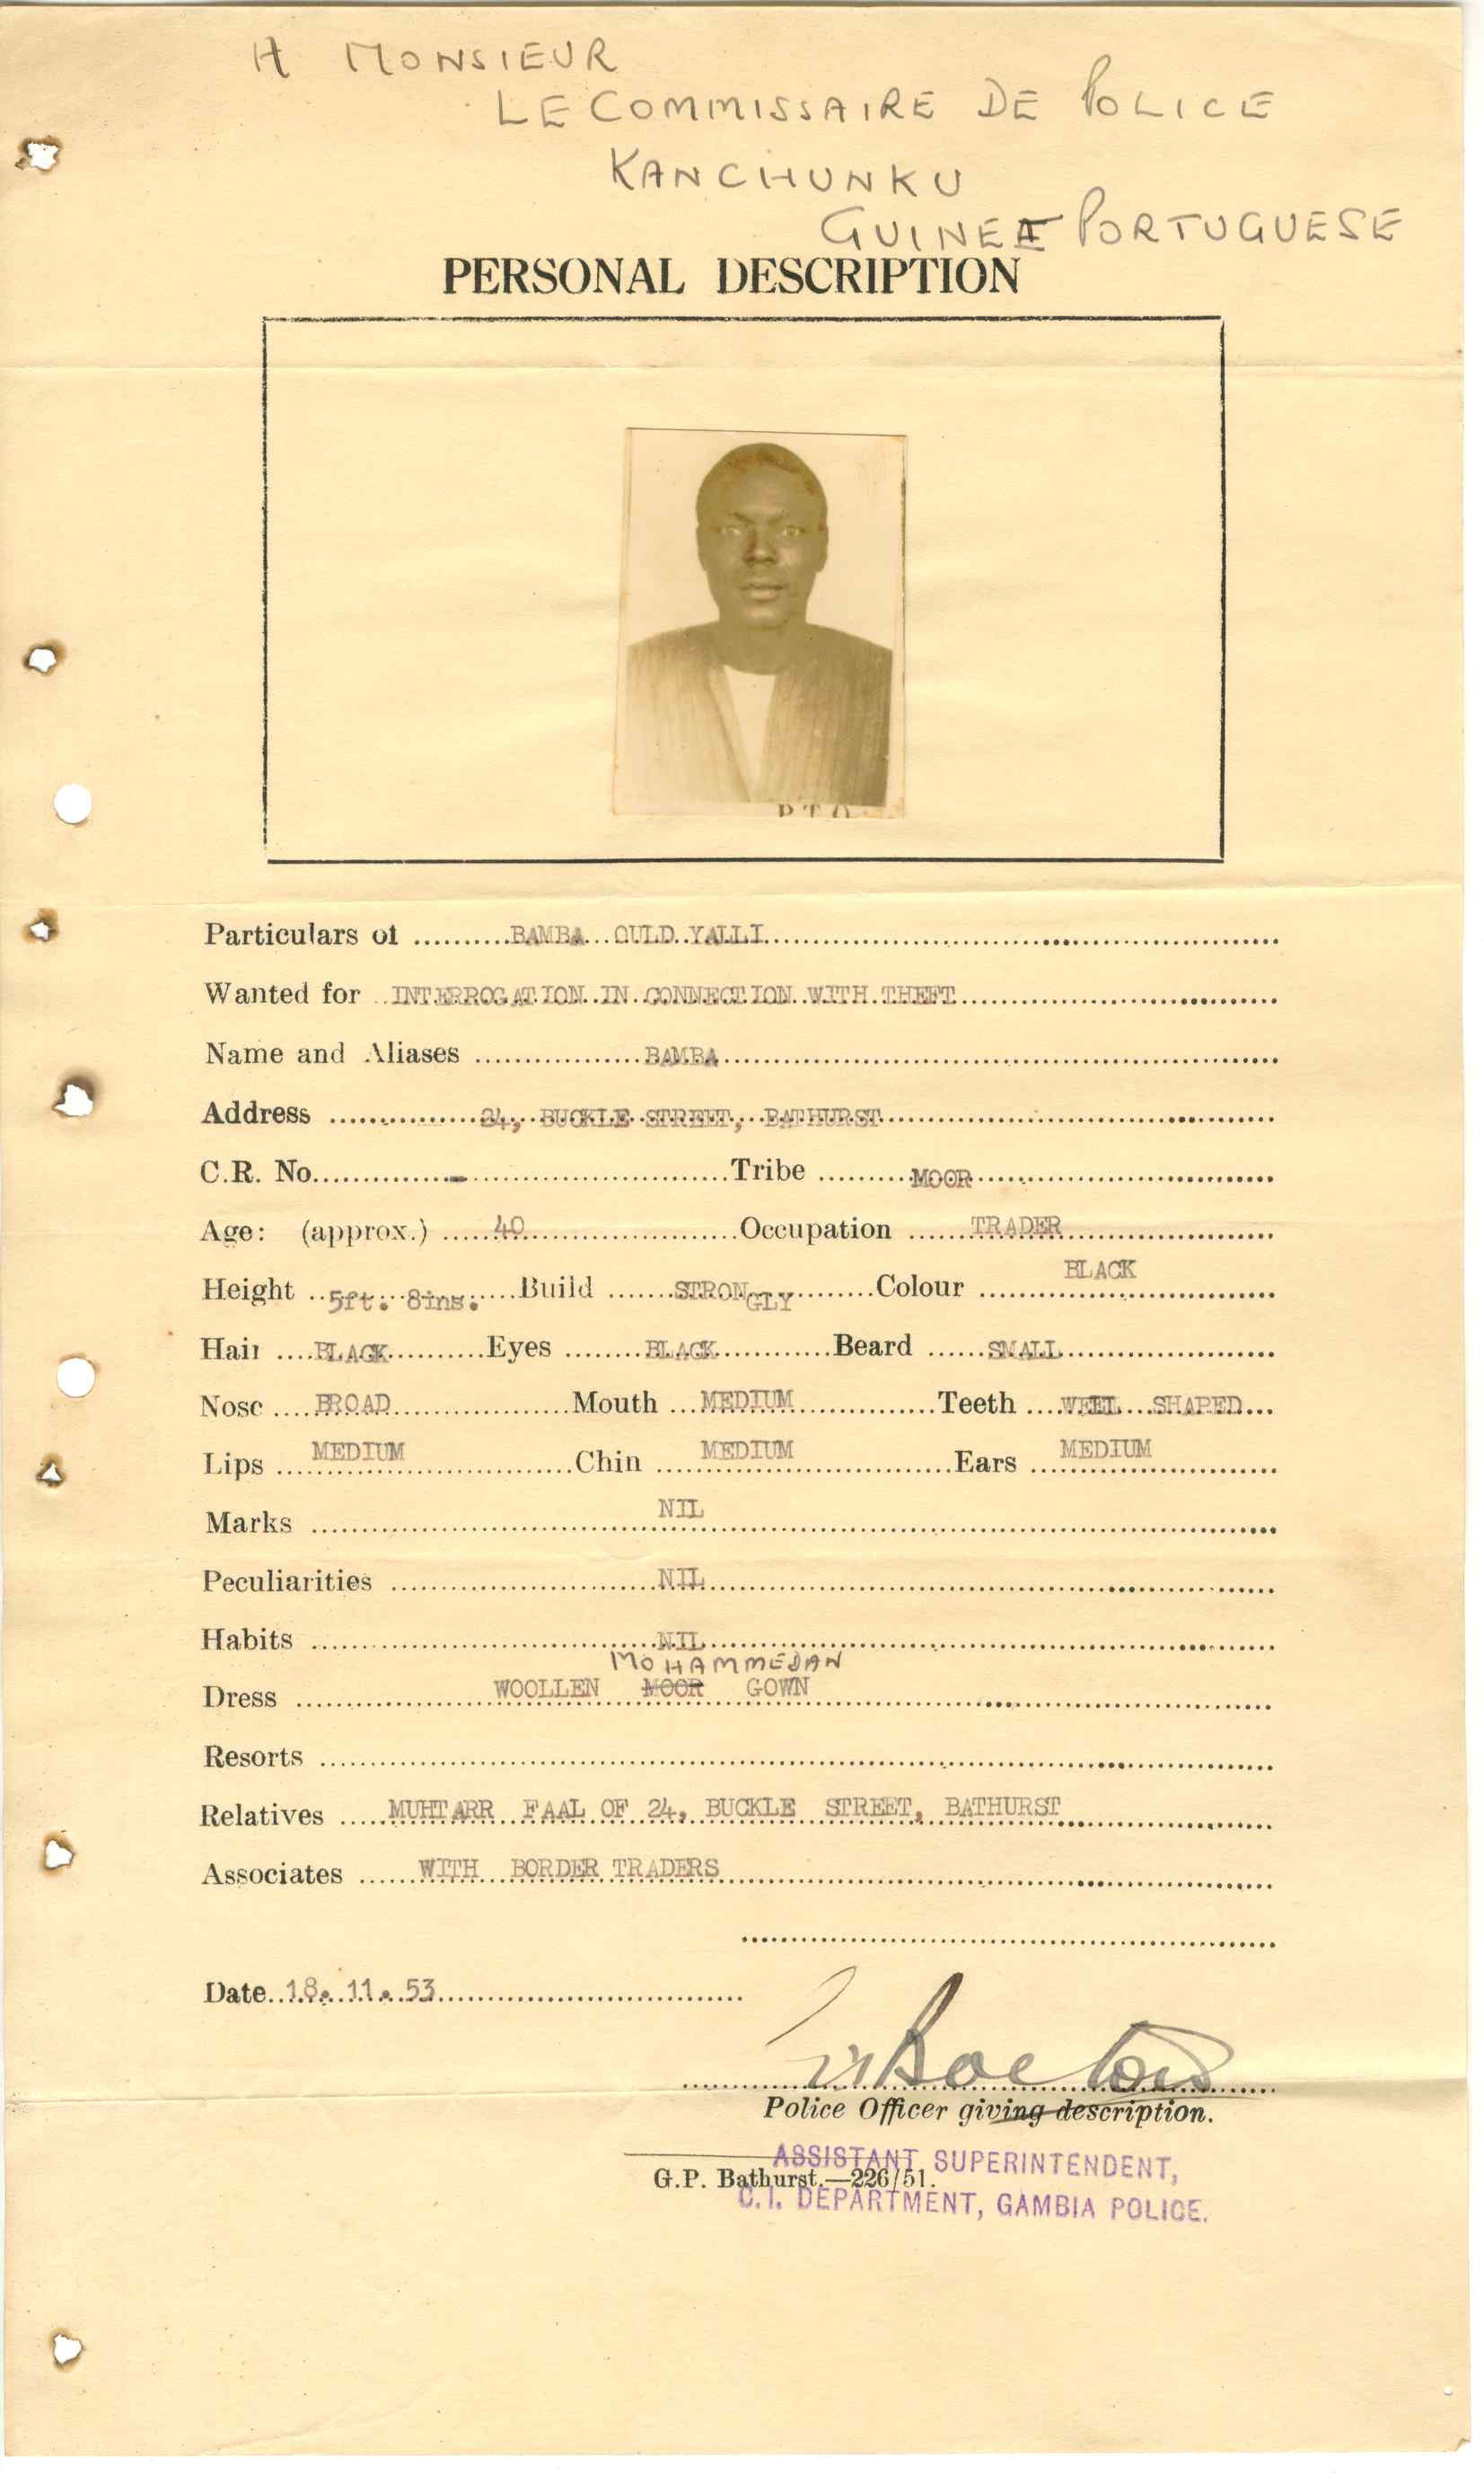 A MONSIEUR
LE COMMISSAIRE DE POLICE
KANCHUNKU
GUINEE PORTUGUESE
PERSONAL DESCRIPTION
P.T.O.
Particulars of BAMBA OULD YALLI
Wanted for INTERROGATION IN CONNECTION WITH THEFT
Name and Aliases BAMBA
Address 24, BUCKLE STREET, BATHURST
C.R. No. - Tribe MOOR
Age: (approx.) 40 Occupation TRADER
Height 5ft. 8ins. Build STRONGLY Colour BLACK
Hair BLACK Eyes BLACK Beard SMALL
Nose BROAD Mouth MEDIUM Teeth WELL SHAPED
Lips MEDIUM Chin MEDIUM Ears MEDIUM
Marks NIL
Peculiarities NIL
Habits NIL
MOHAMMEDAN
Dress WOOLLEN MOOR GOWN
Resorts
Relatives MUHTARR FAAL OF 24, BUCKLE STREET, BATHURST
Associates WITH BORDER TRADERS
Date 18. 11. 53
Police Officer giving description.
ASSISTANT SUPERINTENDENT,
G.P. Bathurst.—226/51.
C.I. DEPARTMENT, GAMBIA POLICE.